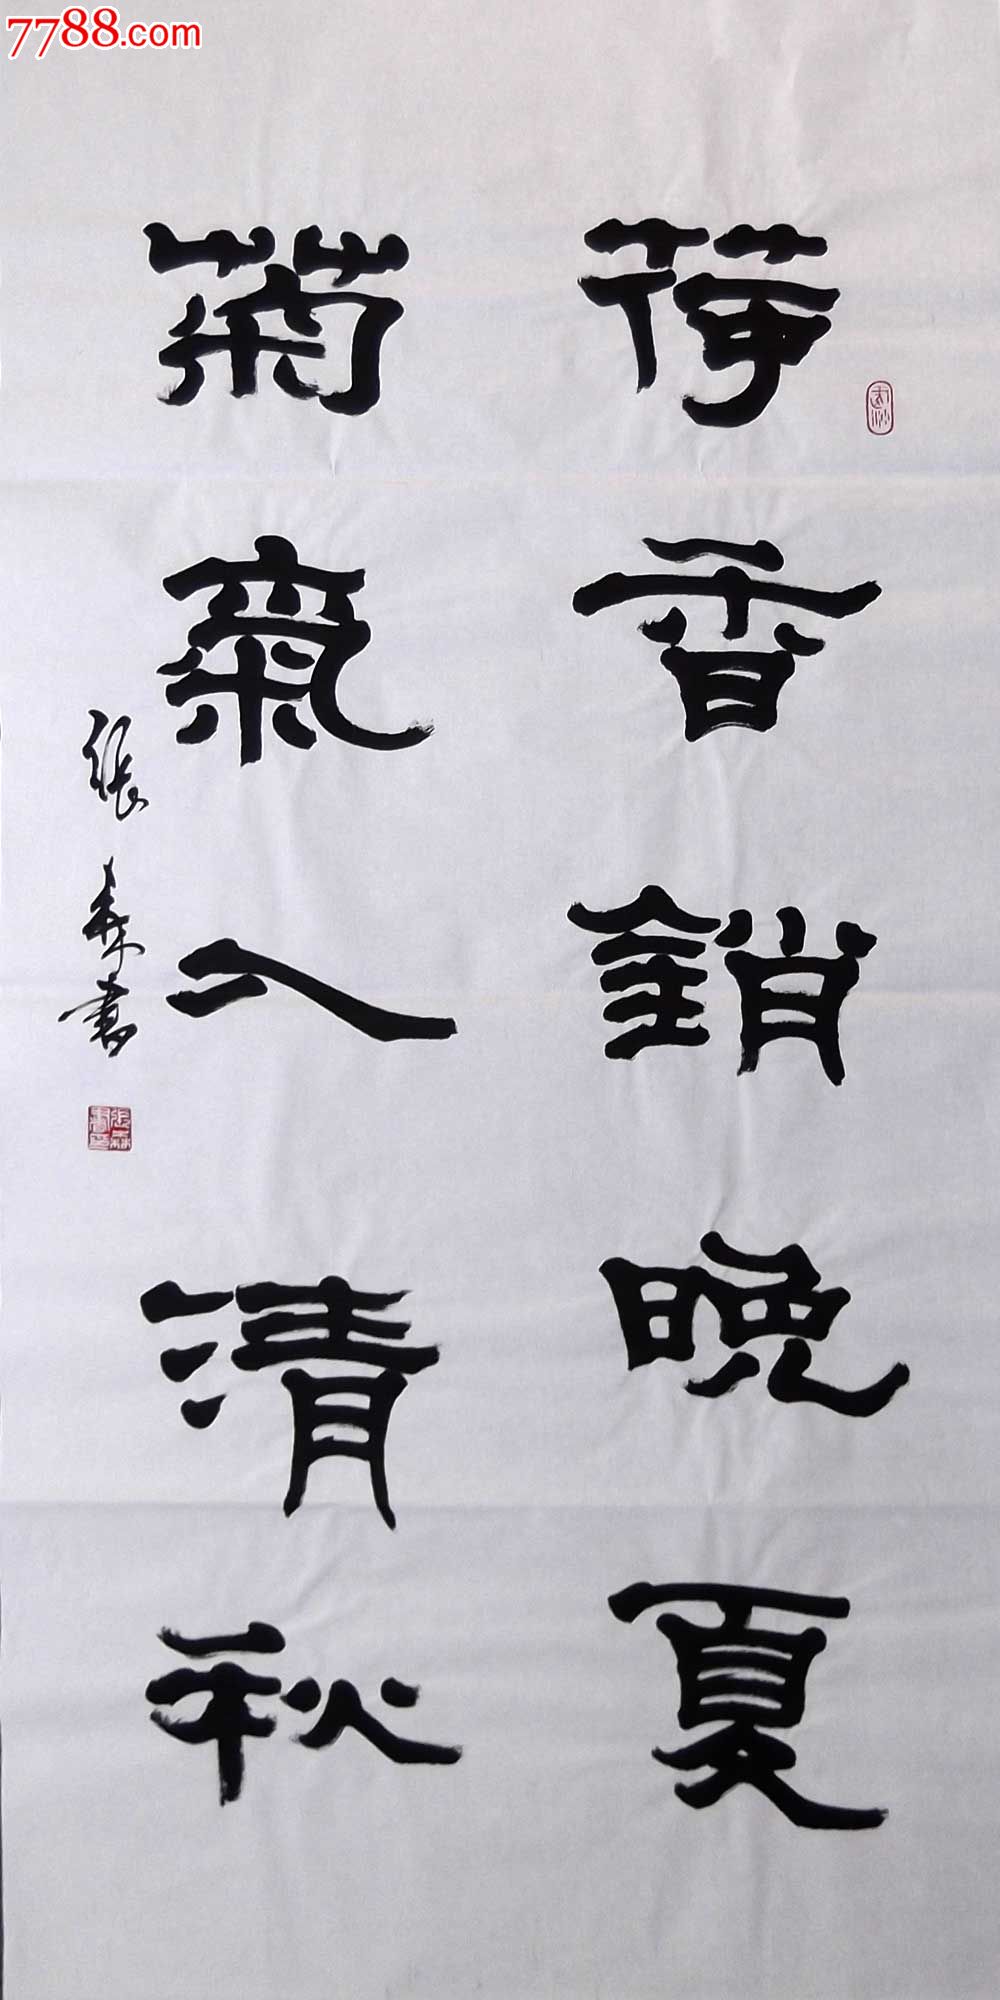 7788.com
荷香銷晚夏
菊氣入清秋
張森書